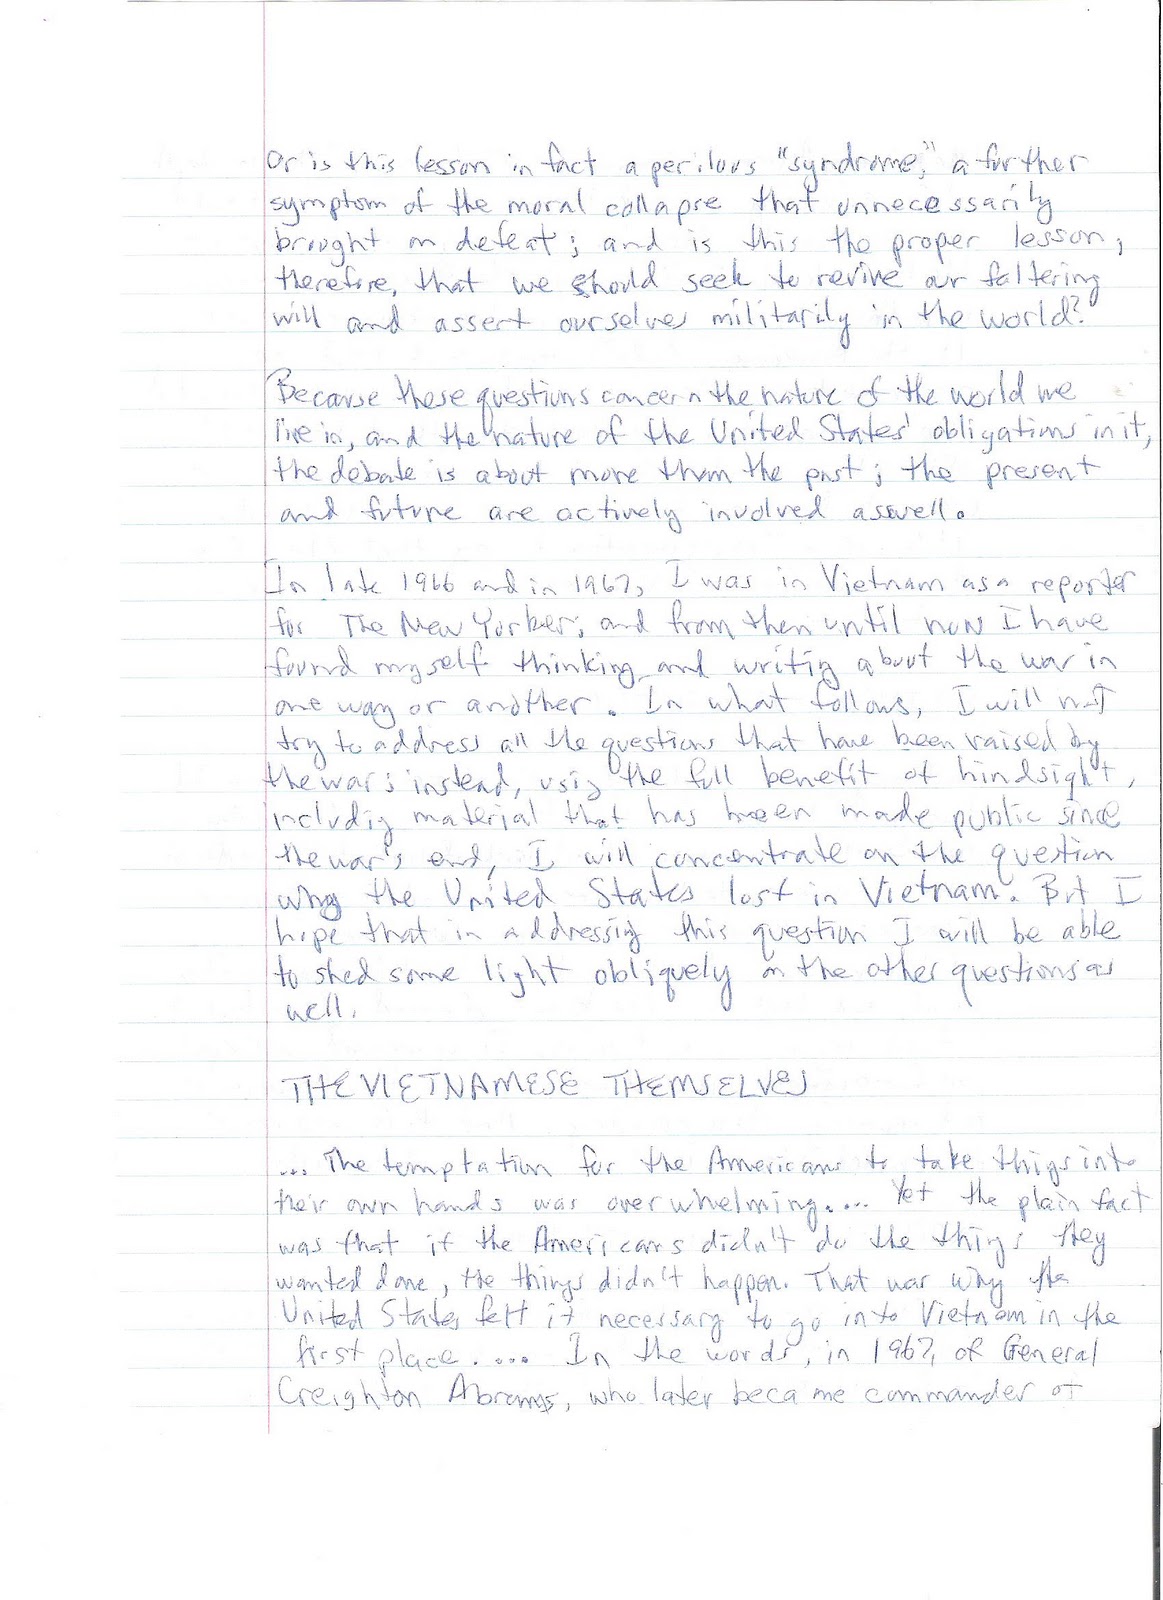 Or is this lesson in fact a perilous "syndrome," a further
symptom of the moral collapse that unnecessarily
brought on defeat; and is this the proper lesson,
therefore, that we should seek to revive our faltering
will and assert ourselves militarily in the world?
Because these questions concern the nature of the world we
live in, and the nature of the United States' obligations in it,
the debate is about more than the past; the present
and future are actively involved as well.
In late 1966 and in 1967, I was in Vietnam as a reporter
for The New Yorker, and from then until now I have
found myself thinking and writig about the war in
one way or another. In what follows, I will not
try to address all the questions that have been raised by
the war; instead, usig the full benefit of hindsight,
includig material that has been made public since
the war's end, I will concentrate on the question
why the United States lost in Vietnam. But I
hope that in addressig this question I will be able
to shed some light obliquely on the other questions as
well.
THE VIETNAMESE THEMSELVES
... The temptation for the Americans to take thigs into
their own hands was overwhelming.... Yet the plain fact
was that if the Americans didn't do the thigs they
wanted done, the things didn't happen. That was why the
United States felt it necessary to go into Vietnam in the
first place. .... In the words, in 1967, of General
Creighton Abrams, who later became commander of